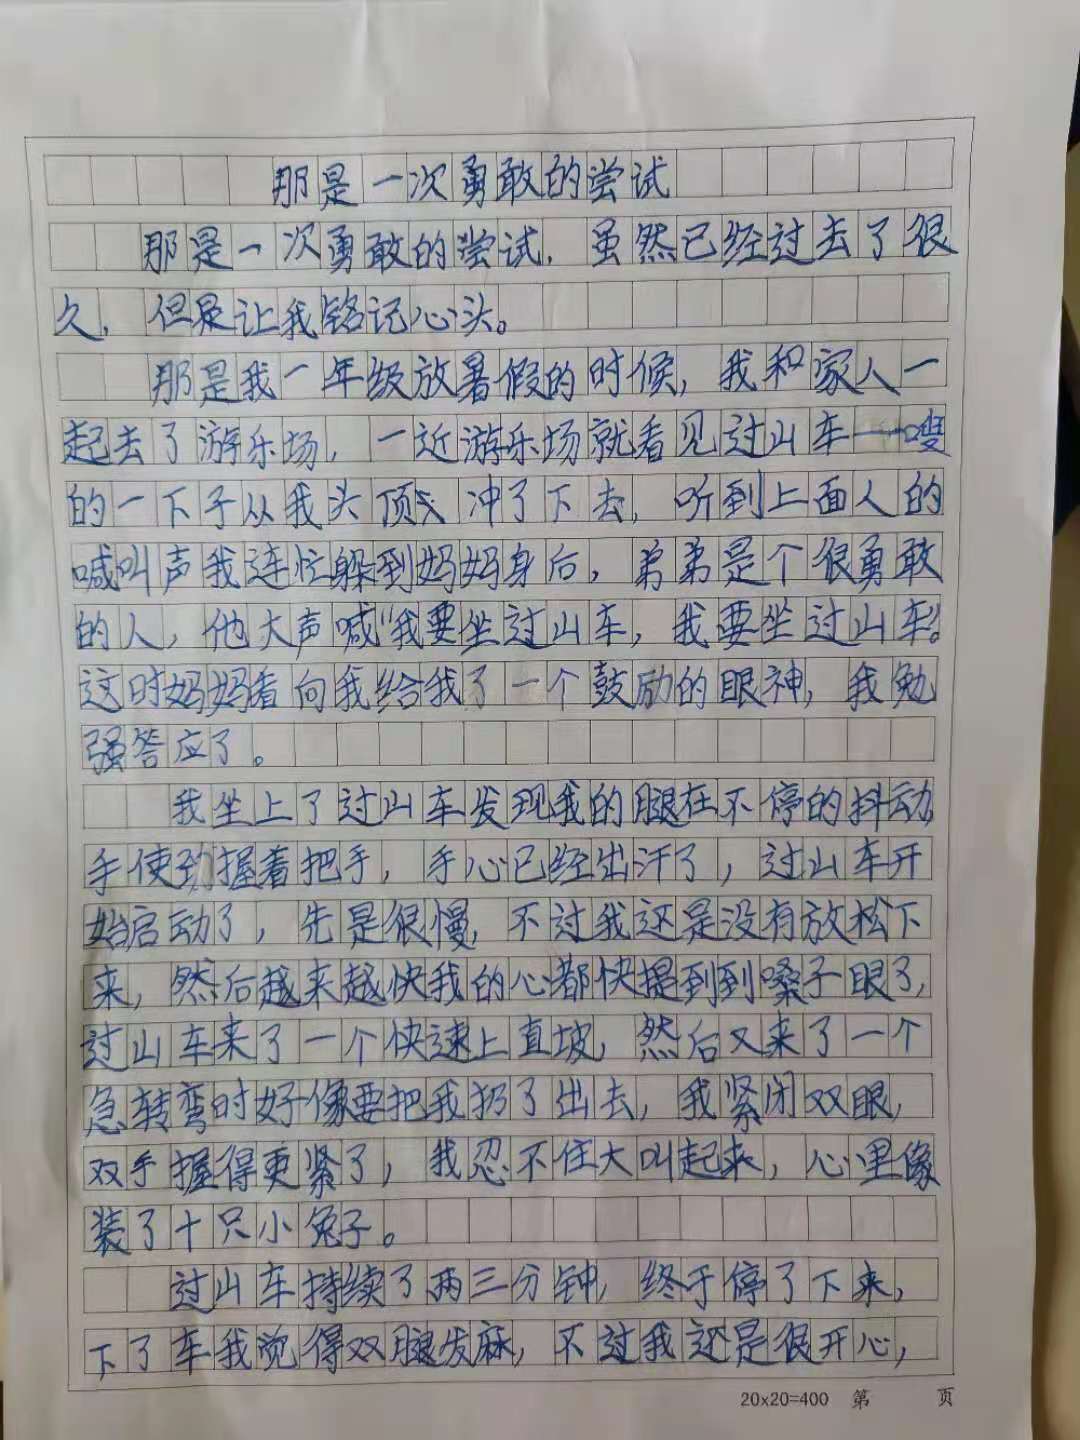 那是一次勇敢的尝试
那是一次勇敢的尝试，虽然已经过去了很
久，但是让我铭记心头。
那是我一年级放暑假的时候，我和家人一
起去了游乐场，一近游乐场就看见过山车一嗖
的一下子从我头顶冲了下去，听到上面人的
喊叫声我连忙躲到妈妈身后，弟弟是个很勇敢
的人，他大声喊“我要坐过山车，我要坐过山车”。
这时妈妈看向我给我了一个鼓励的眼神，我勉
强答应了。
我坐上了过山车发现我的腿在不停的抖动，
手使劲握着把手，手心已经出汗了，过山车开
始启动了，先是很慢，不过我还是没有放松下
来，然后越来越快我的心都快提到到嗓子眼了，
过山车来了一个快速上直坡，然后又来了一个
急转弯时好像要把我扔了出去，我紧闭双眼，
双手握得更紧了，我忍不住大叫起来，心里像
装了十只小兔子。
过山车持续了两三分钟，终于停了下来，
下了车我觉得双腿发麻，不过我还是很开心，
20×20=400 第 页